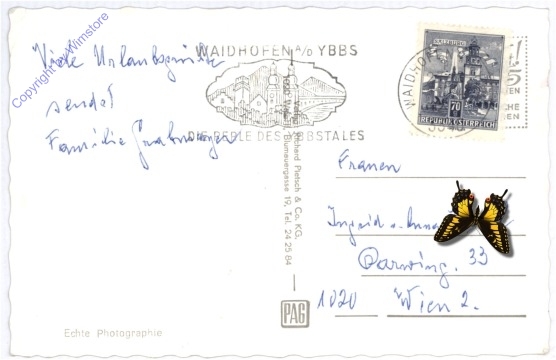 Copyright by Wimstore
Viele Urlaubsgrüße
sendet
Familie
WAIDHOFEN A/D YBBS
DIE PERLE DES YBBSTALES
SALZBURG
70
REPUBLIK ÖSTERREICH
WAIDHOFEN
Richard Pietsch & Co. KG,
Blumauergasse 19, Tel. 24 25 84
PAG
Frauen
Ingrid u. Anna
Darwing. 33
1020 Wien 2.
Echte Photographie